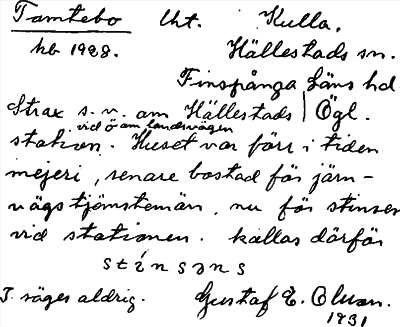 Tomtebo lht. Kulla.
kb 1928. Hällestads sn.
Finspånga Läns hd.
Strax s. v. om Hällestads | Ögl.
vid ö om landsvägen
station. Huset var förr i tiden
mejeri, senare bostad för järn-
vägstjänstemän, nu för stinsen
vid stationen. kallas därför
stínsəns
T. säges aldrig. Gustaf E. Olson.
1931